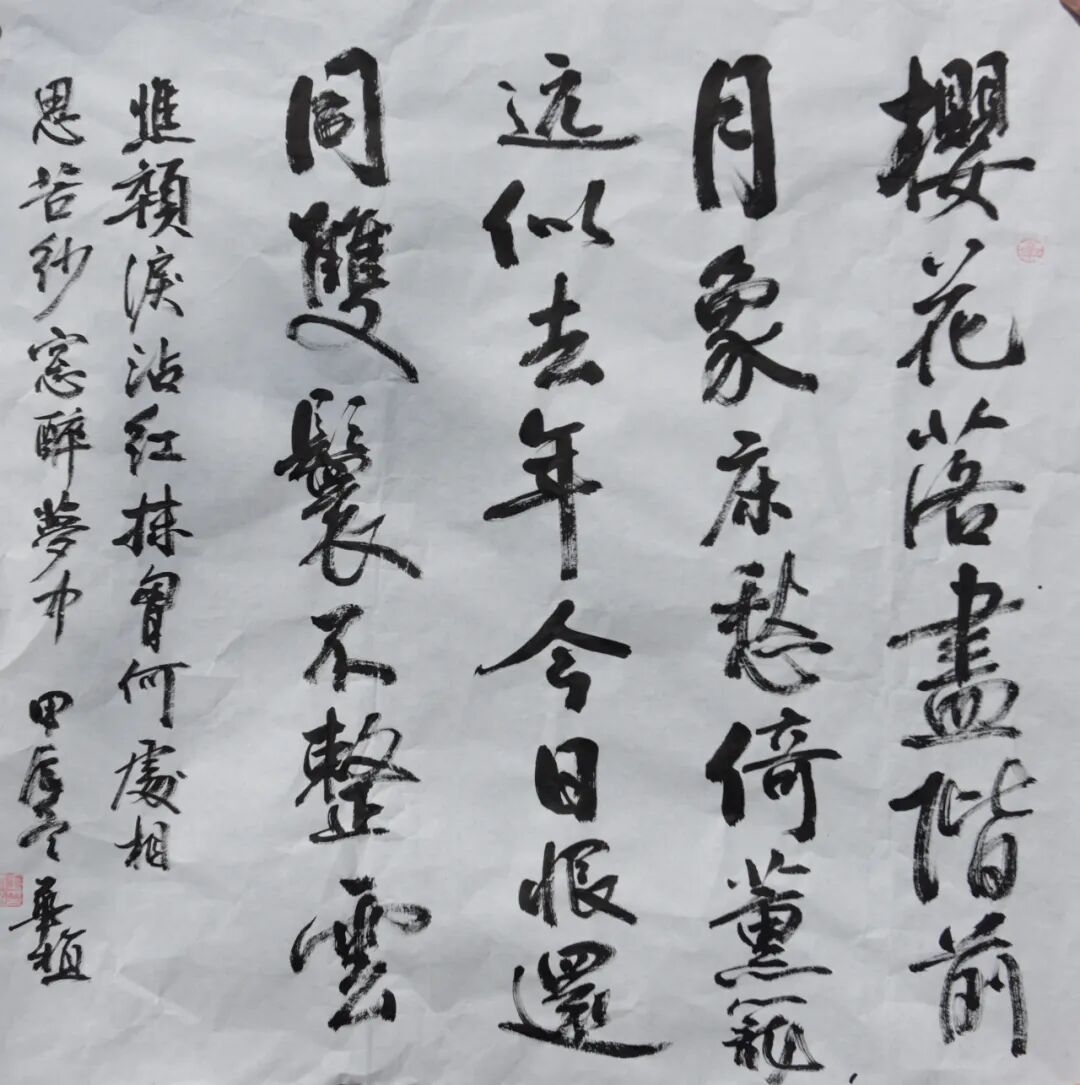 櫻花落盡階前
月象床愁倚薰籠
远似去年今日恨還
同雙鬟不整雲
憔顇淚沾紅抹胷何處相
思苦紗窓醉夢中 甲辰冬 華